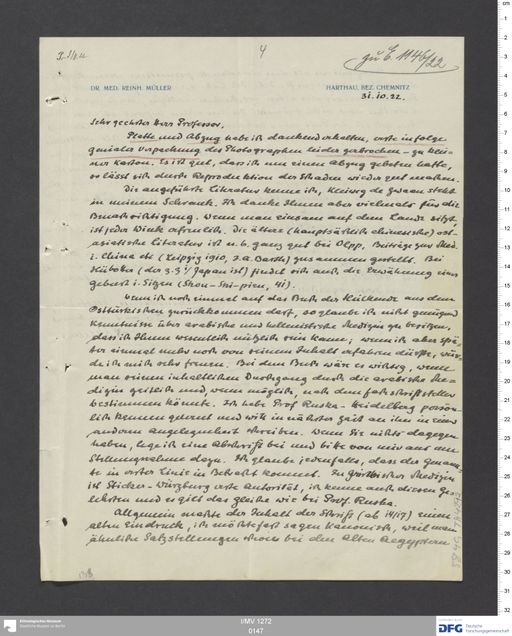 4
zu E. 1146/22
DR. MED. REINH. MÜLLER
HARTHAU, BEZ. CHEMNITZ
31.10.22.
Sehr geehrter Herr Professor,
Platte und Abzug habe ich dankend erhalten, erste infolge
genialer Verpackung des Photographen leider gebrochen – zu klei-
ner Karton. Es ist gut, dass ich um einen Abzug gebeten hatte,
so lässt sich durch Reproduktion der Schaden wieder gut machen.
Die angeführte Literatur kenne ich, Kleiweg de Zwaan steht
in meinem Schrank. Ich danke Ihnen aber vielmals für die
Benachrichtigung. Wenn man einsam auf dem Lande sitzt,
ist jeder Wink erfreulich. Die ältere (hauptsächlich chinesische) ost-
asiatische Literatur ist u. b. ganz gut bei Olpp, Beiträge zur Med.
i. China etc (Leipzig 1910, J. A. Barth) zusammen gestellt. Bei
Hübotter findet sich auch die Erwähnung einer
geburt i. Sitzen
Wenn ich noch einmal auf das Buch der Heilkunde aus dem
Osttürkischen zurückkommen darf, so glaube ich nicht genügend
Kenntnisse über arabische und hellenistische Medizin zu besitzen,
dass ich Ihnen wesentlich nützlich sein kann; wenn ich aber spä-
ter einmal mehr noch von seinem Inhalt erfahren dürfte, wür-
de ich mich sehr freuen. Bei dem Buch wäre es wichtig, wenn
man seinen inhaltlichen Durchgang durch die arabische Me-
dizin zeitlich und wenn möglich, nach dem Fachschriftsteller
bestimmen könnte. Ich habe Prof Ruska-Heidelberg persön-
lich kennen gelernt und will in nächster Zeit an ihn in einer
anderen Angelegenheit schreiben. Wenn Sie nichts dagegen
haben, lege ich eine Abschrift bei und bitte von mir aus um
Stellungnahme dazu. Ich glaube jedenfalls, dass der Genann-
te in erster Linie in Betracht kommt. In griechischer Medizin
ist Sticker-Würzburg erste Autorität, ich kenne auch diesen Ge-
lehrten und es gilt das gleiche wie bei Prof. Ruska.
Allgemein machte der Inhalt der Schrift einen
alten Eindruck, ich möchte fast sagen kanonisch, weil man
ähnliche Satzstellungen schon bei den alten Aegyptern
Ethnologisches Museum
Staatliche Museen zu Berlin
I/MV 1272
0147
DFG
Deutsche
Forschungsgemeinschaft